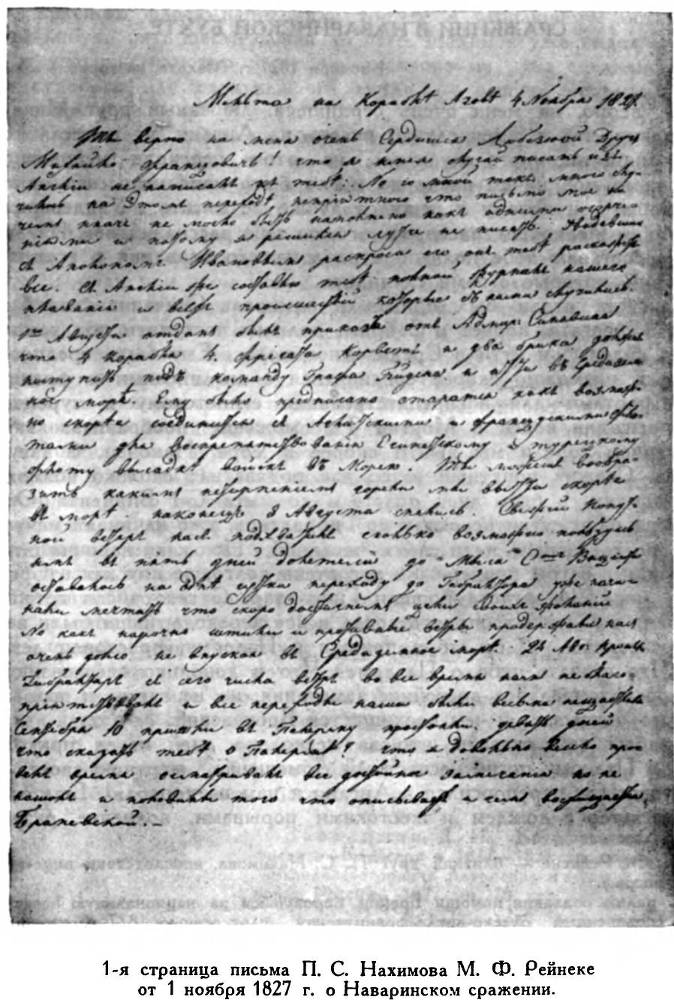 Мальта на Корабле Азове 4 Ноября 1827.
Ты верно на меня очень сердишся Любезной Друг
Михайло Францовичь! что я имея случай писать изъ
Англіи не написалъ къ тебѣ: Но со мной такъ много слу
на этомъ переходѣ непріятного что письмо мое ни
чемъ иначе не могло быть наполнено какъ одними
и потому я решился лучше не писать.
съ Ивановымъ распроси его, онъ тебѣ раскажетъ
все. Съ Англіи же составлю тебѣ полной журналъ нашего
плаванія и всехъ происшествій которые съ нами случились.
1го Августа отданъ былъ приказъ отъ Адмир: Синявина
что 4 корабля 4. фрегата корветъ и два брика должны
поступить подъ команду Графа Гейдена и идти въ Средизем
ное море. Ему было предписано старатся какъ возмож
но скорѣе соединится съ Англискими и французскими фло
тами для воспрепятствованія Египетскому и турецкому
флоту высадки войскъ въ Морею. Ты можешь вообра
зить какимъ нетерпеніемъ горели мы вытти скорѣе
въ море. наконецъ 8 Августа снялись. Свежій попут
ной ветеръ насъ подхватилъ сколько возможно
въ пять дней долетели до Мыса Сентъ Винцента
оставалось на дни сутки переходу до Гибралтара уже начи
нали мечтать что скоро достигнемъ цели своихъ желаній
Но какъ нарочно штили и противные ветры продержали насъ
очень долго не впуская въ Средиземное море. 24 Авг: прошли
Гибралтаръ съ сего числа ветръ во все время намъ не благо
пріятствовалъ и все переходы наши были весьма нещастливы
Сентября 10 пришли въ Палерму простояли девять дней
что сказать тебѣ о Палермѣ? что я довольно весело про
велъ время осматривалъ все достойное замечанія но не
нашелъ и половины того что описываетъ и чемъ восхищается
Браневской. –
1-я страница письма П. С. Нахимова М. Ф. Рейнеке
от 1 ноября 1827 г. о Наваринском сражении.